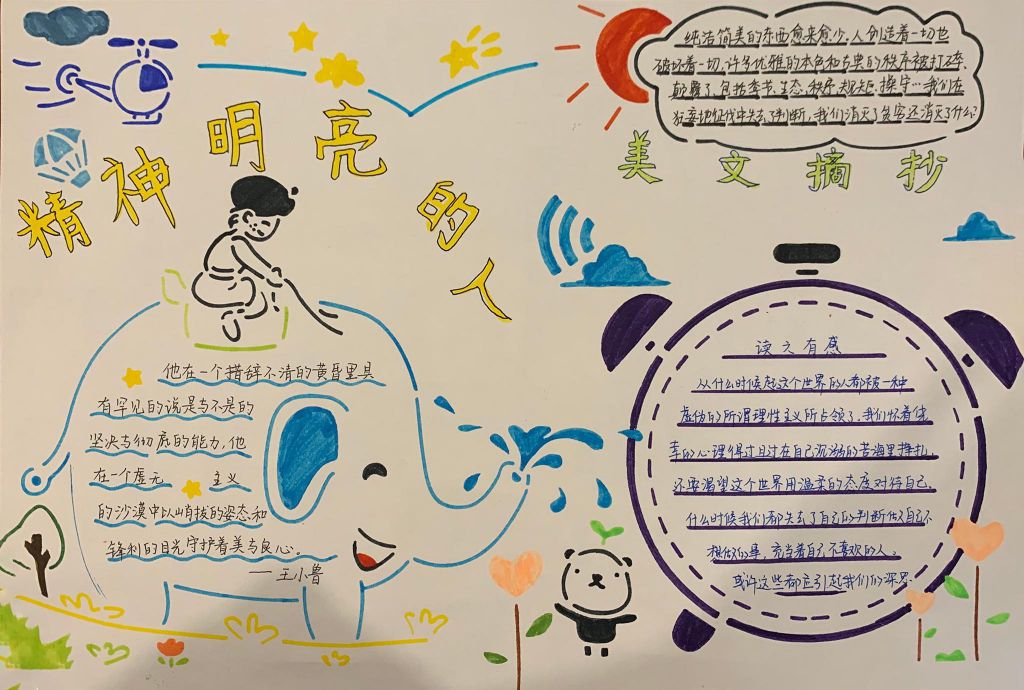 精神明亮的人
纯洁简美的东西愈来愈少，人创造着一切也
破坏着一切，许多优雅的本色和古典的秩序被打碎、
颠覆了，包括季节、生态、秩序、规矩、操守…我们在
狂妄地征伐中失去了判断，我们消灭了贫穷还消灭了什么？
美文摘抄
他在一个措辞不清的黄昏里具
有罕见的说是与不是的
坚决与彻底的能力，他
在一个虚无 主义
的沙漠中以峭拔的姿态和
锋利的目光守护着美与良心。
——王小鲁
读文有感
从什么时候起这个世界的人都被一种
虚伪的所谓理性主义所占领了，我们怀着侥
幸的心理得过且过在自己沉溺的苦海里挣扎，
还要渴望这个世界用温柔的态度对待自己，
什么时候我们都失去了自己的判断做自己不
想做的事，充当着自己不喜欢的人。
或许这些都应引起我们的深思.